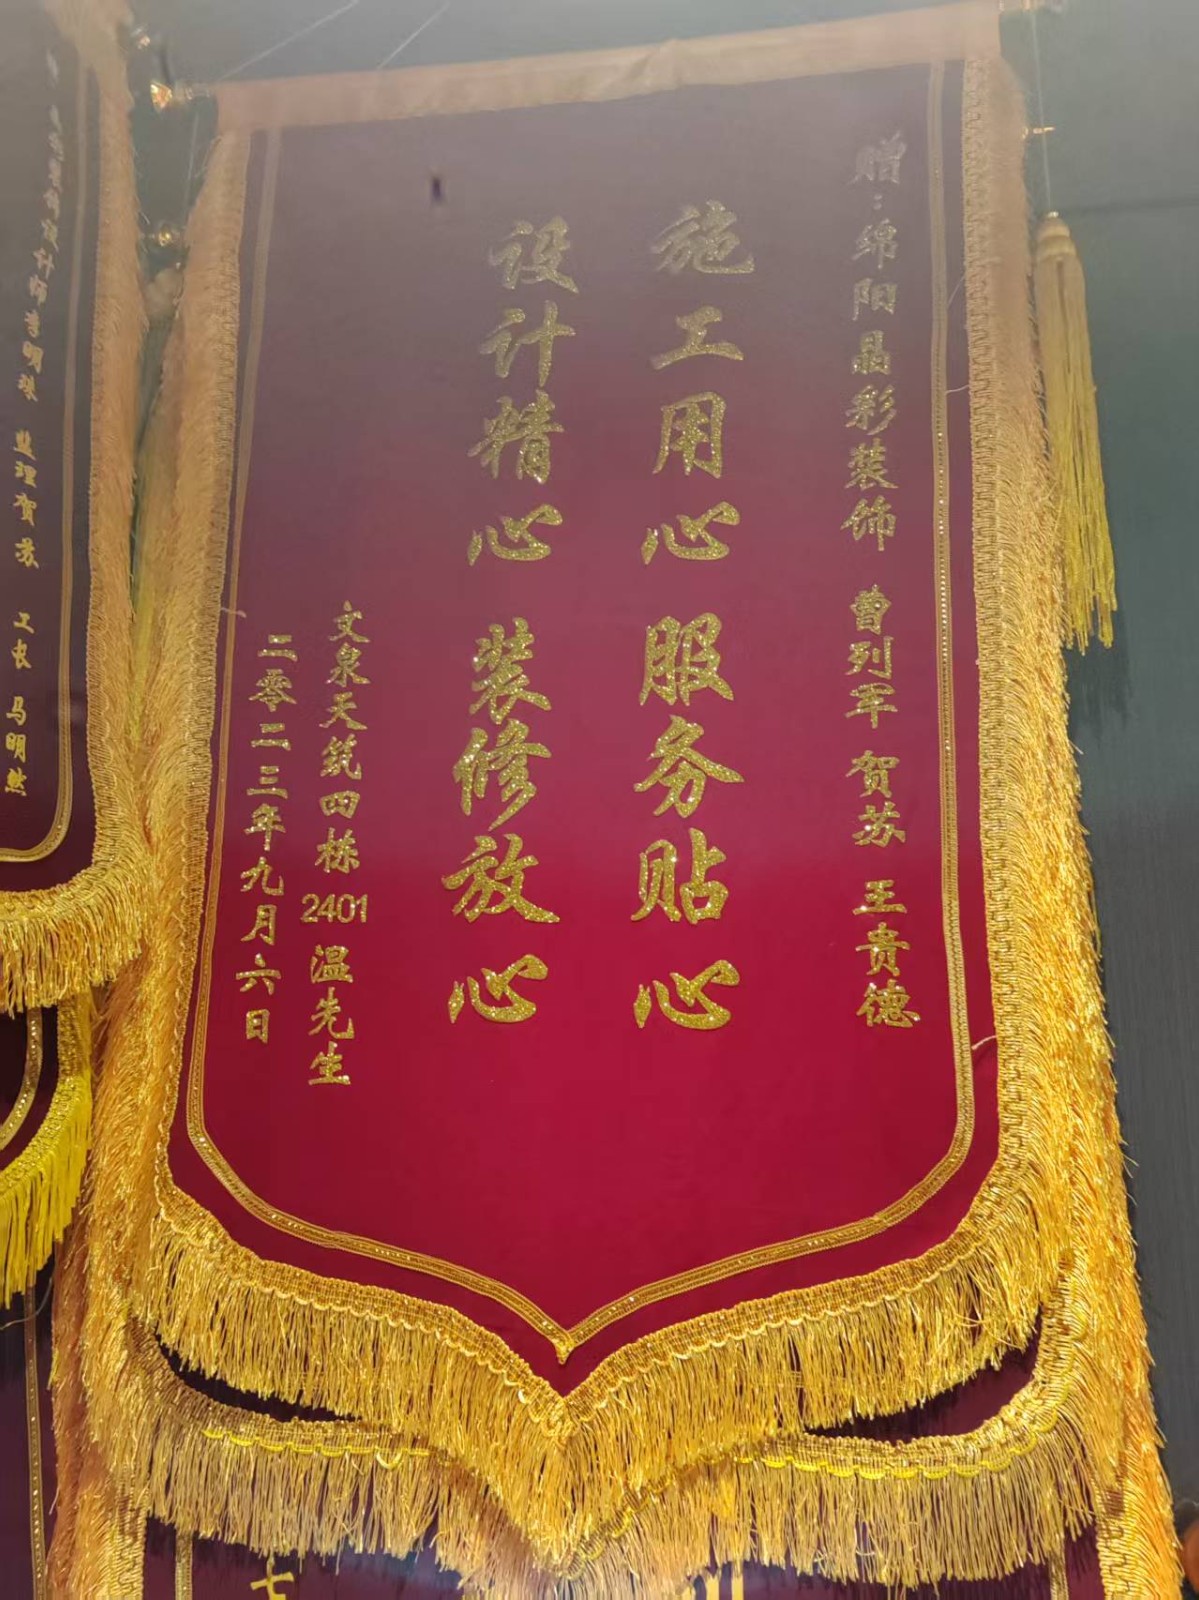 赠：绵阳晶彩装饰 曾列军 贺苏 王贵德
施工用心 服务贴心
设计精心 装修放心
文泉天筑四栋2401温先生
二零二三年九月六日
计师李明珠 监理贺苏 工长 马明然
七